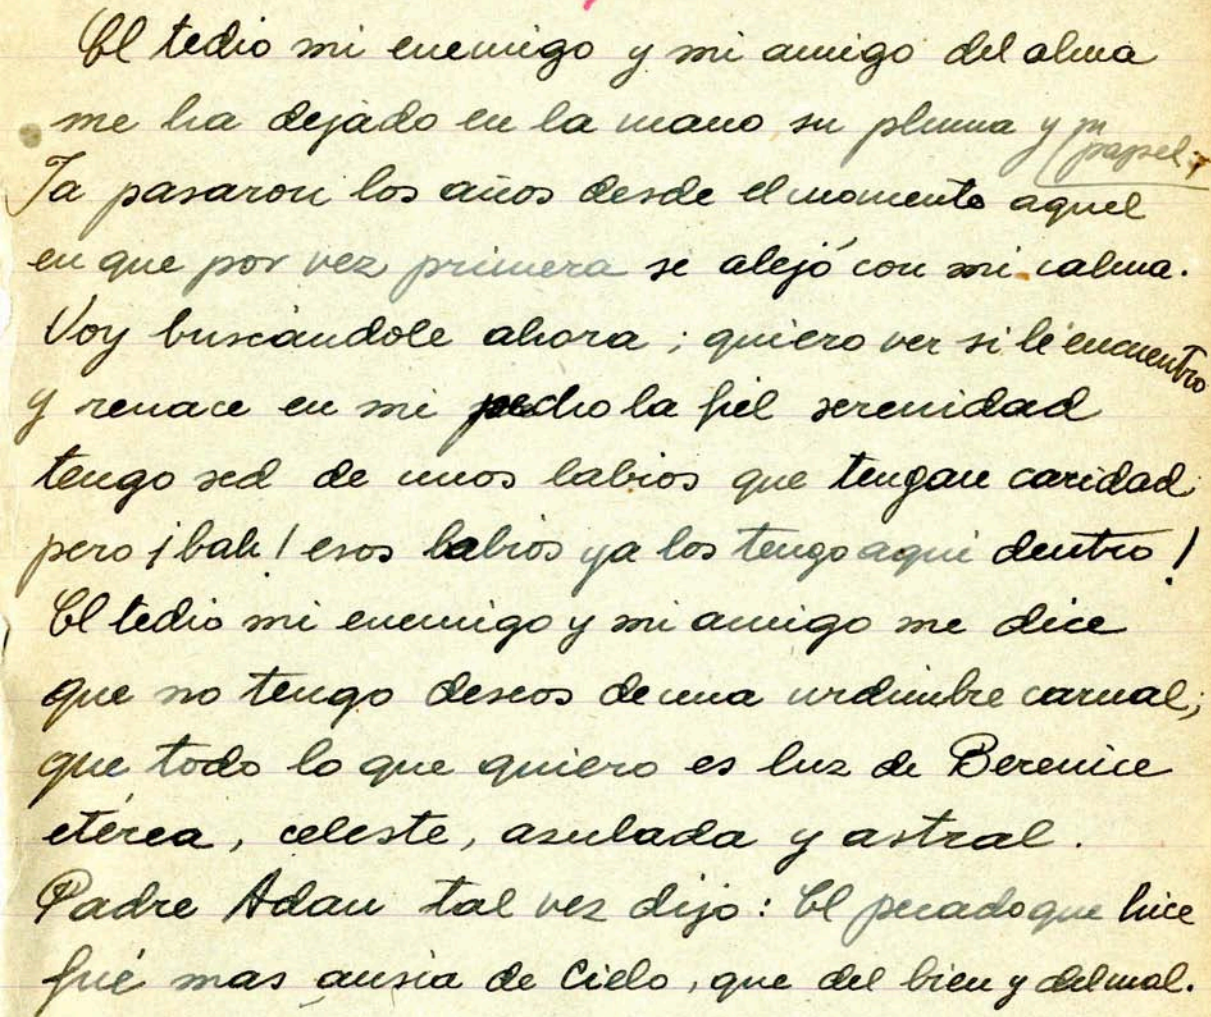 El tedio mi enemigo y mi amigo del alma
me ha dejado en la mano su pluma y su papel,
Ya pasaron los años desde el momento aquel
en que por vez primera se alejó con mi calma.
Voy buscándole ahora; quiero ver si le encuentro
y renace en mi pecho la fiel serenidad
tengo sed de unos labios que tengan caridad
pero ¡bah! esos labios ya los tengo aquí dentro!
El tedio mi enemigo y mi amigo me dice
que no tengo deseos de una urdimbre carnal;
que todo lo que quiero es luz de Berenice
etérea, celeste, asulada y astral.
Padre Adan tal vez dijo: El pecado que hice
fué mas ansia de Cielo, que del bien y del mal.